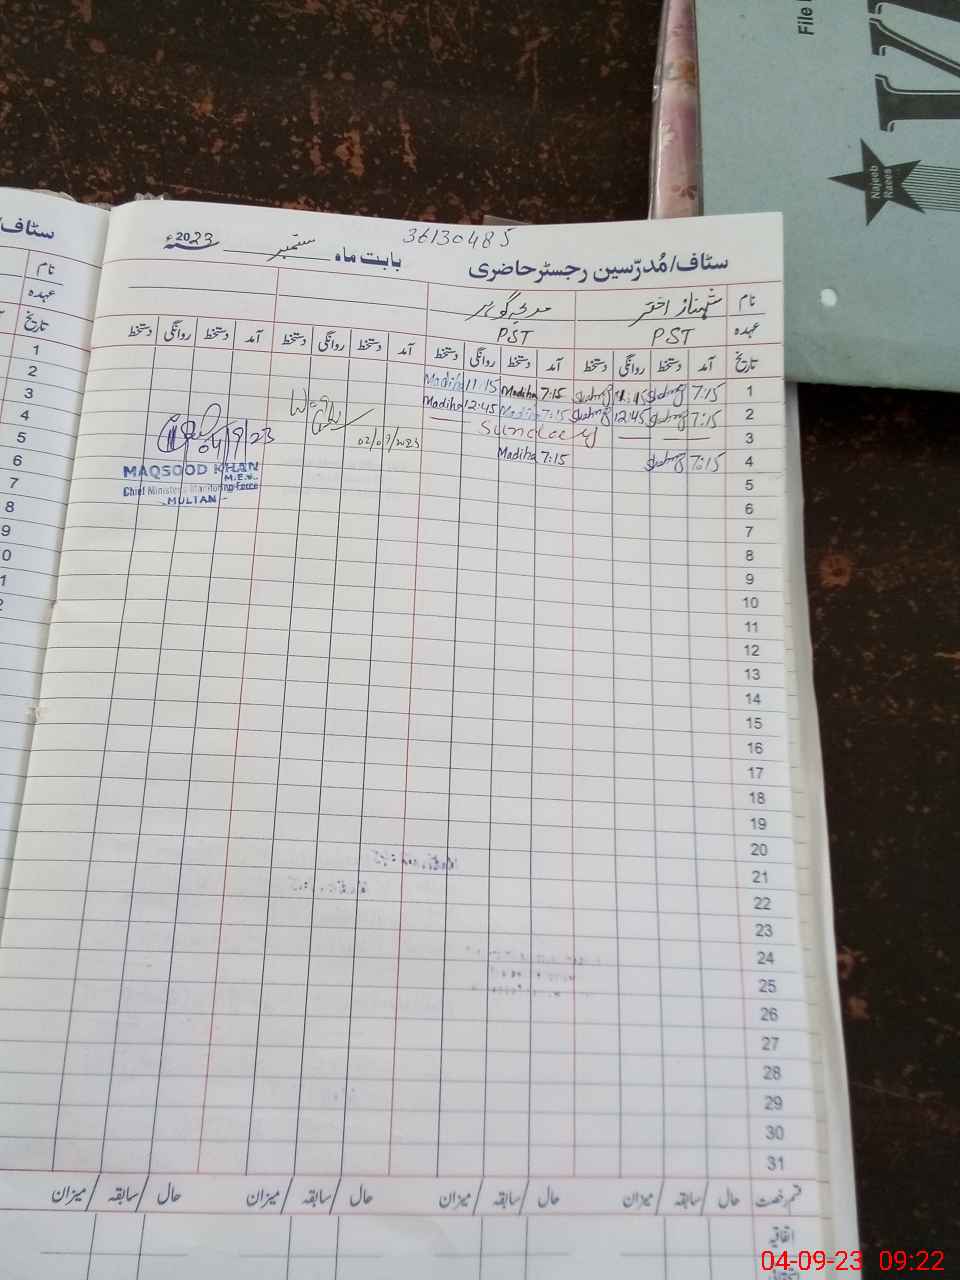 File
Najeeb
Raees
36130485
سٹاف/مُدرّسین رجسٹر حاضری بابت ماہ ستمبر 2023ء
سٹاف/
نام شہناز اختر
نام
عہدہ PST PST
عہدہ
تاریخ آمد دستخط روانگی دستخط آمد دستخط روانگی دستخط آمد دستخط روانگی دستخط آمد دستخط روانگی دستخط
تاریخ
1 7:15 11:15 7:15 Madiha 11:15 Madiha
2 7:15 12:45 7:15 Madiha 12:45 Madiha
3 Sunday
4 7:15 7:15 Madiha
02/09/2023
04/9/23
MAQSOOD KHAN
M.E.A.
Chief Minister's Monitoring Force
MULTAN
5
6
7
8
9
10
11
12
13
14
15
16
17
18
19
20
21
22
23
24
25
26
27
28
29
30
31
1
2
3
4
5
6
7
8
9
0
1
2
قسم رخصت حال / سابقہ / میزان حال / سابقہ / میزان حال / سابقہ / میزان حال / سابقہ / میزان
اتفاقیہ
04-09-23 09:22